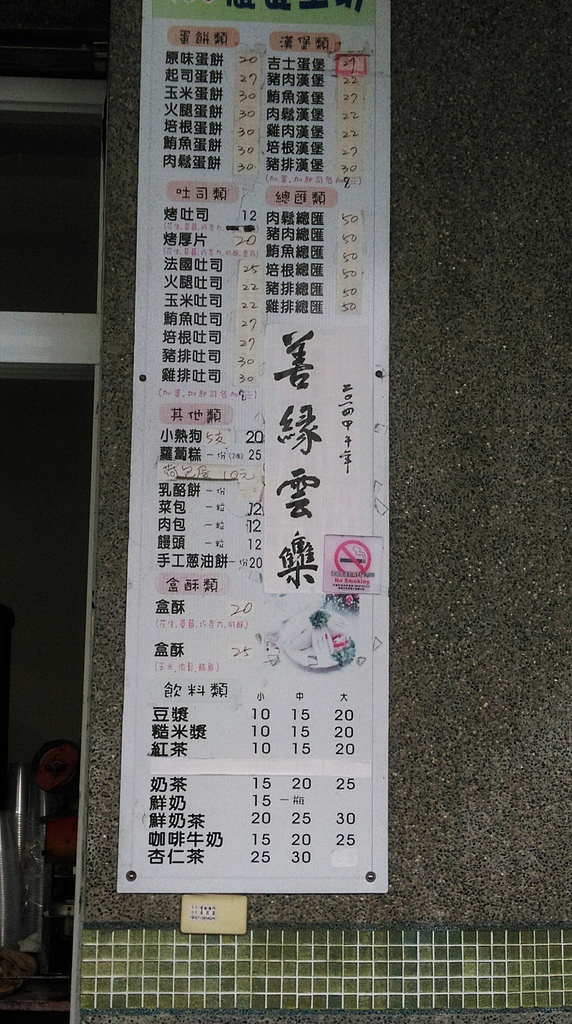 蛋餅類
原味蛋餅 20
起司蛋餅 27
玉米蛋餅 30
火腿蛋餅 30
培根蛋餅 30
鮪魚蛋餅 30
肉鬆蛋餅 30
漢堡類
吉士蛋堡 27
豬肉漢堡 22
鮪魚漢堡 27
肉鬆漢堡 22
雞肉漢堡 22
培根漢堡 27
豬排漢堡 30
吐司類
烤吐司 12
烤厚片 20
法國吐司 25
火腿吐司 22
玉米吐司 22
鮪魚吐司 27
培根吐司 27
豬排吐司 30
雞排吐司 30
總匯類
肉鬆總匯 50
豬肉總匯 50
鮪魚總匯 50
培根總匯 50
豬排總匯 50
雞排總匯 50
其他類
小熱狗 5支 20
蘿蔔糕 一份(2塊) 25
荷包蛋 10元
乳酪餅 一份
菜包 一粒 12
肉包 一粒 12
饅頭 12
手工蔥油餅 一份 20
善緣雲集
No Smoking
盒酥類
盒酥 20
(花生,草莓,巧克力,奶酥)
盒酥 25
(玉米,肉鬆,鮪魚)
飲料類 小 中 大
豆漿 10 15 20
糙米漿 10 15 20
紅茶 10 15 20
奶茶 15 20 25
鮮奶 15 一瓶
鮮奶茶 20 25 30
咖啡牛奶 15 20 25
杏仁茶 25 30